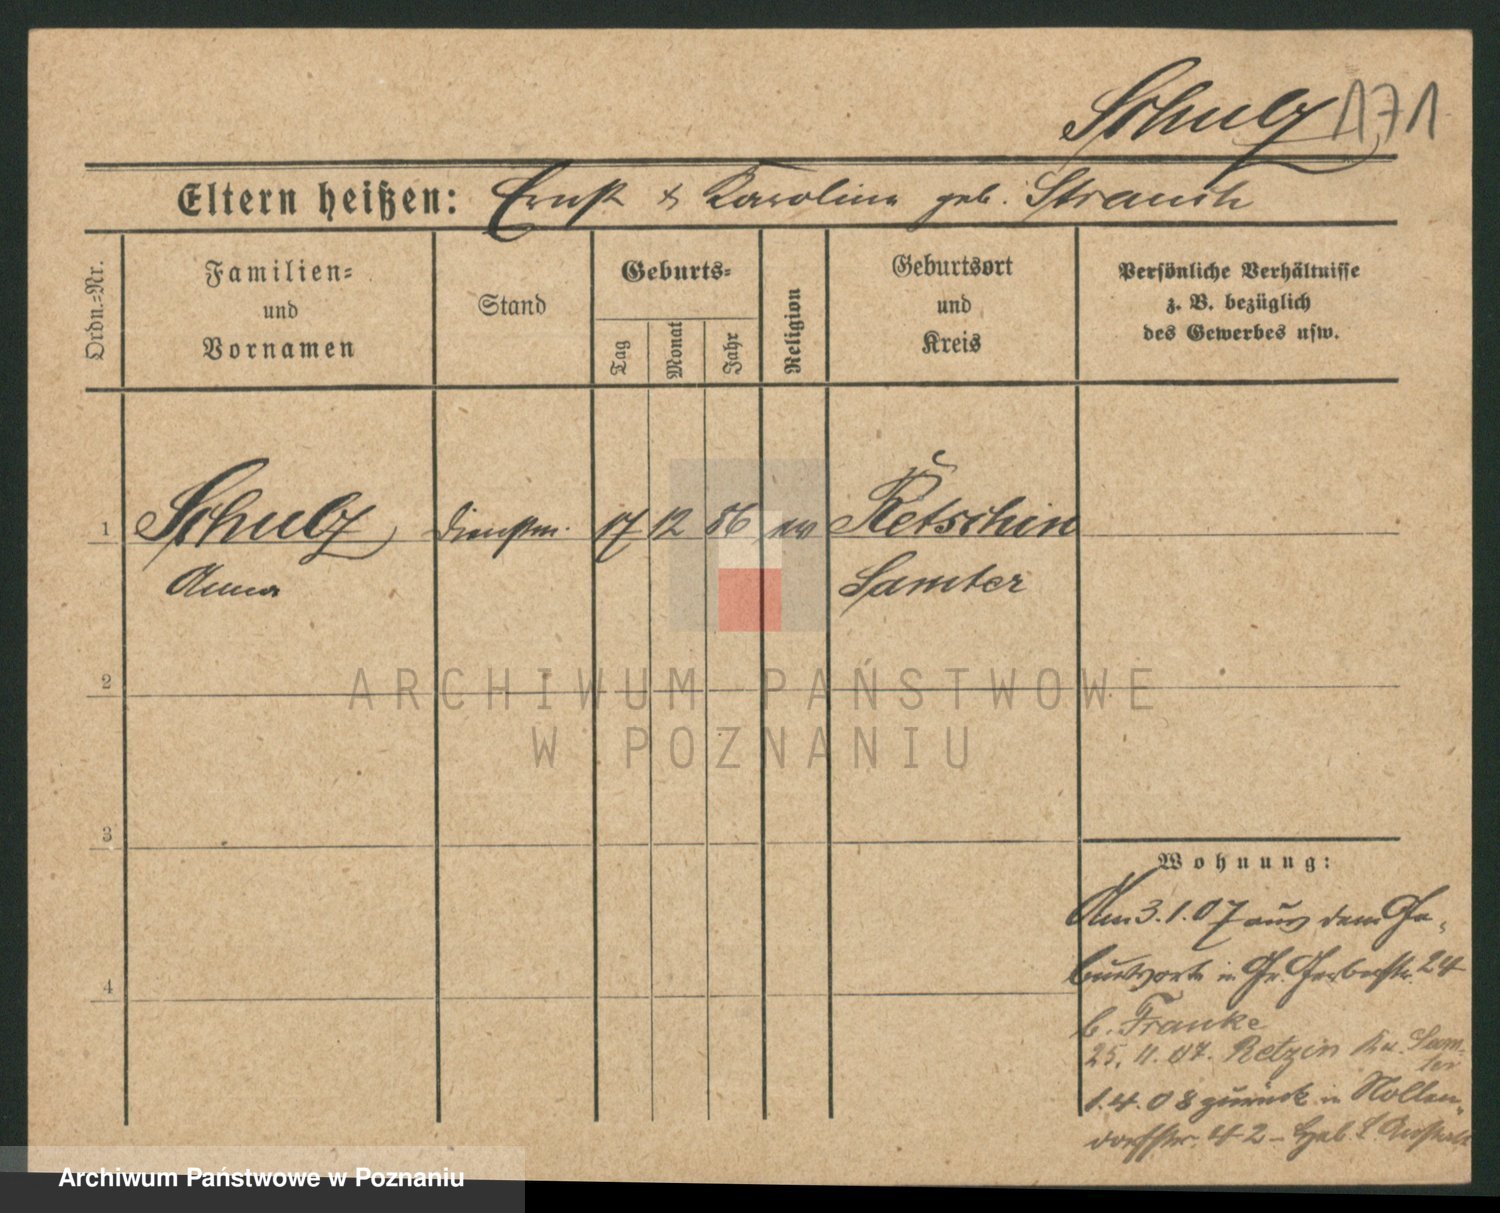 Schulz 171
Eltern heißen: Ernst & Karoline geb. Strauch
Ordn.=Nr.
Familien=
und
Vornamen
Stand
Geburts=
Tag
Monat
Jahr
Religion
Geburtsort
und
Kreis
Persönliche Verhältnisse
z. B. bezüglich
des Gewerbes usw.
1 Schulz Dienstm. 17 12 86 ev Retschin
Anna Samter
2
ARCHIWUM PAŃSTWOWE
W POZNANIU
3
Wohnung:
Am 3.1.07 aus dem Ge-
burtsorte in Gr. Gerberstr. 24
4
b. Franke
25. 11. 07. Retzin Kr. Sam-
ter
1.4.08 zurück in Nollen-
dorfstr. 42
Archiwum Państwowe w Poznaniu